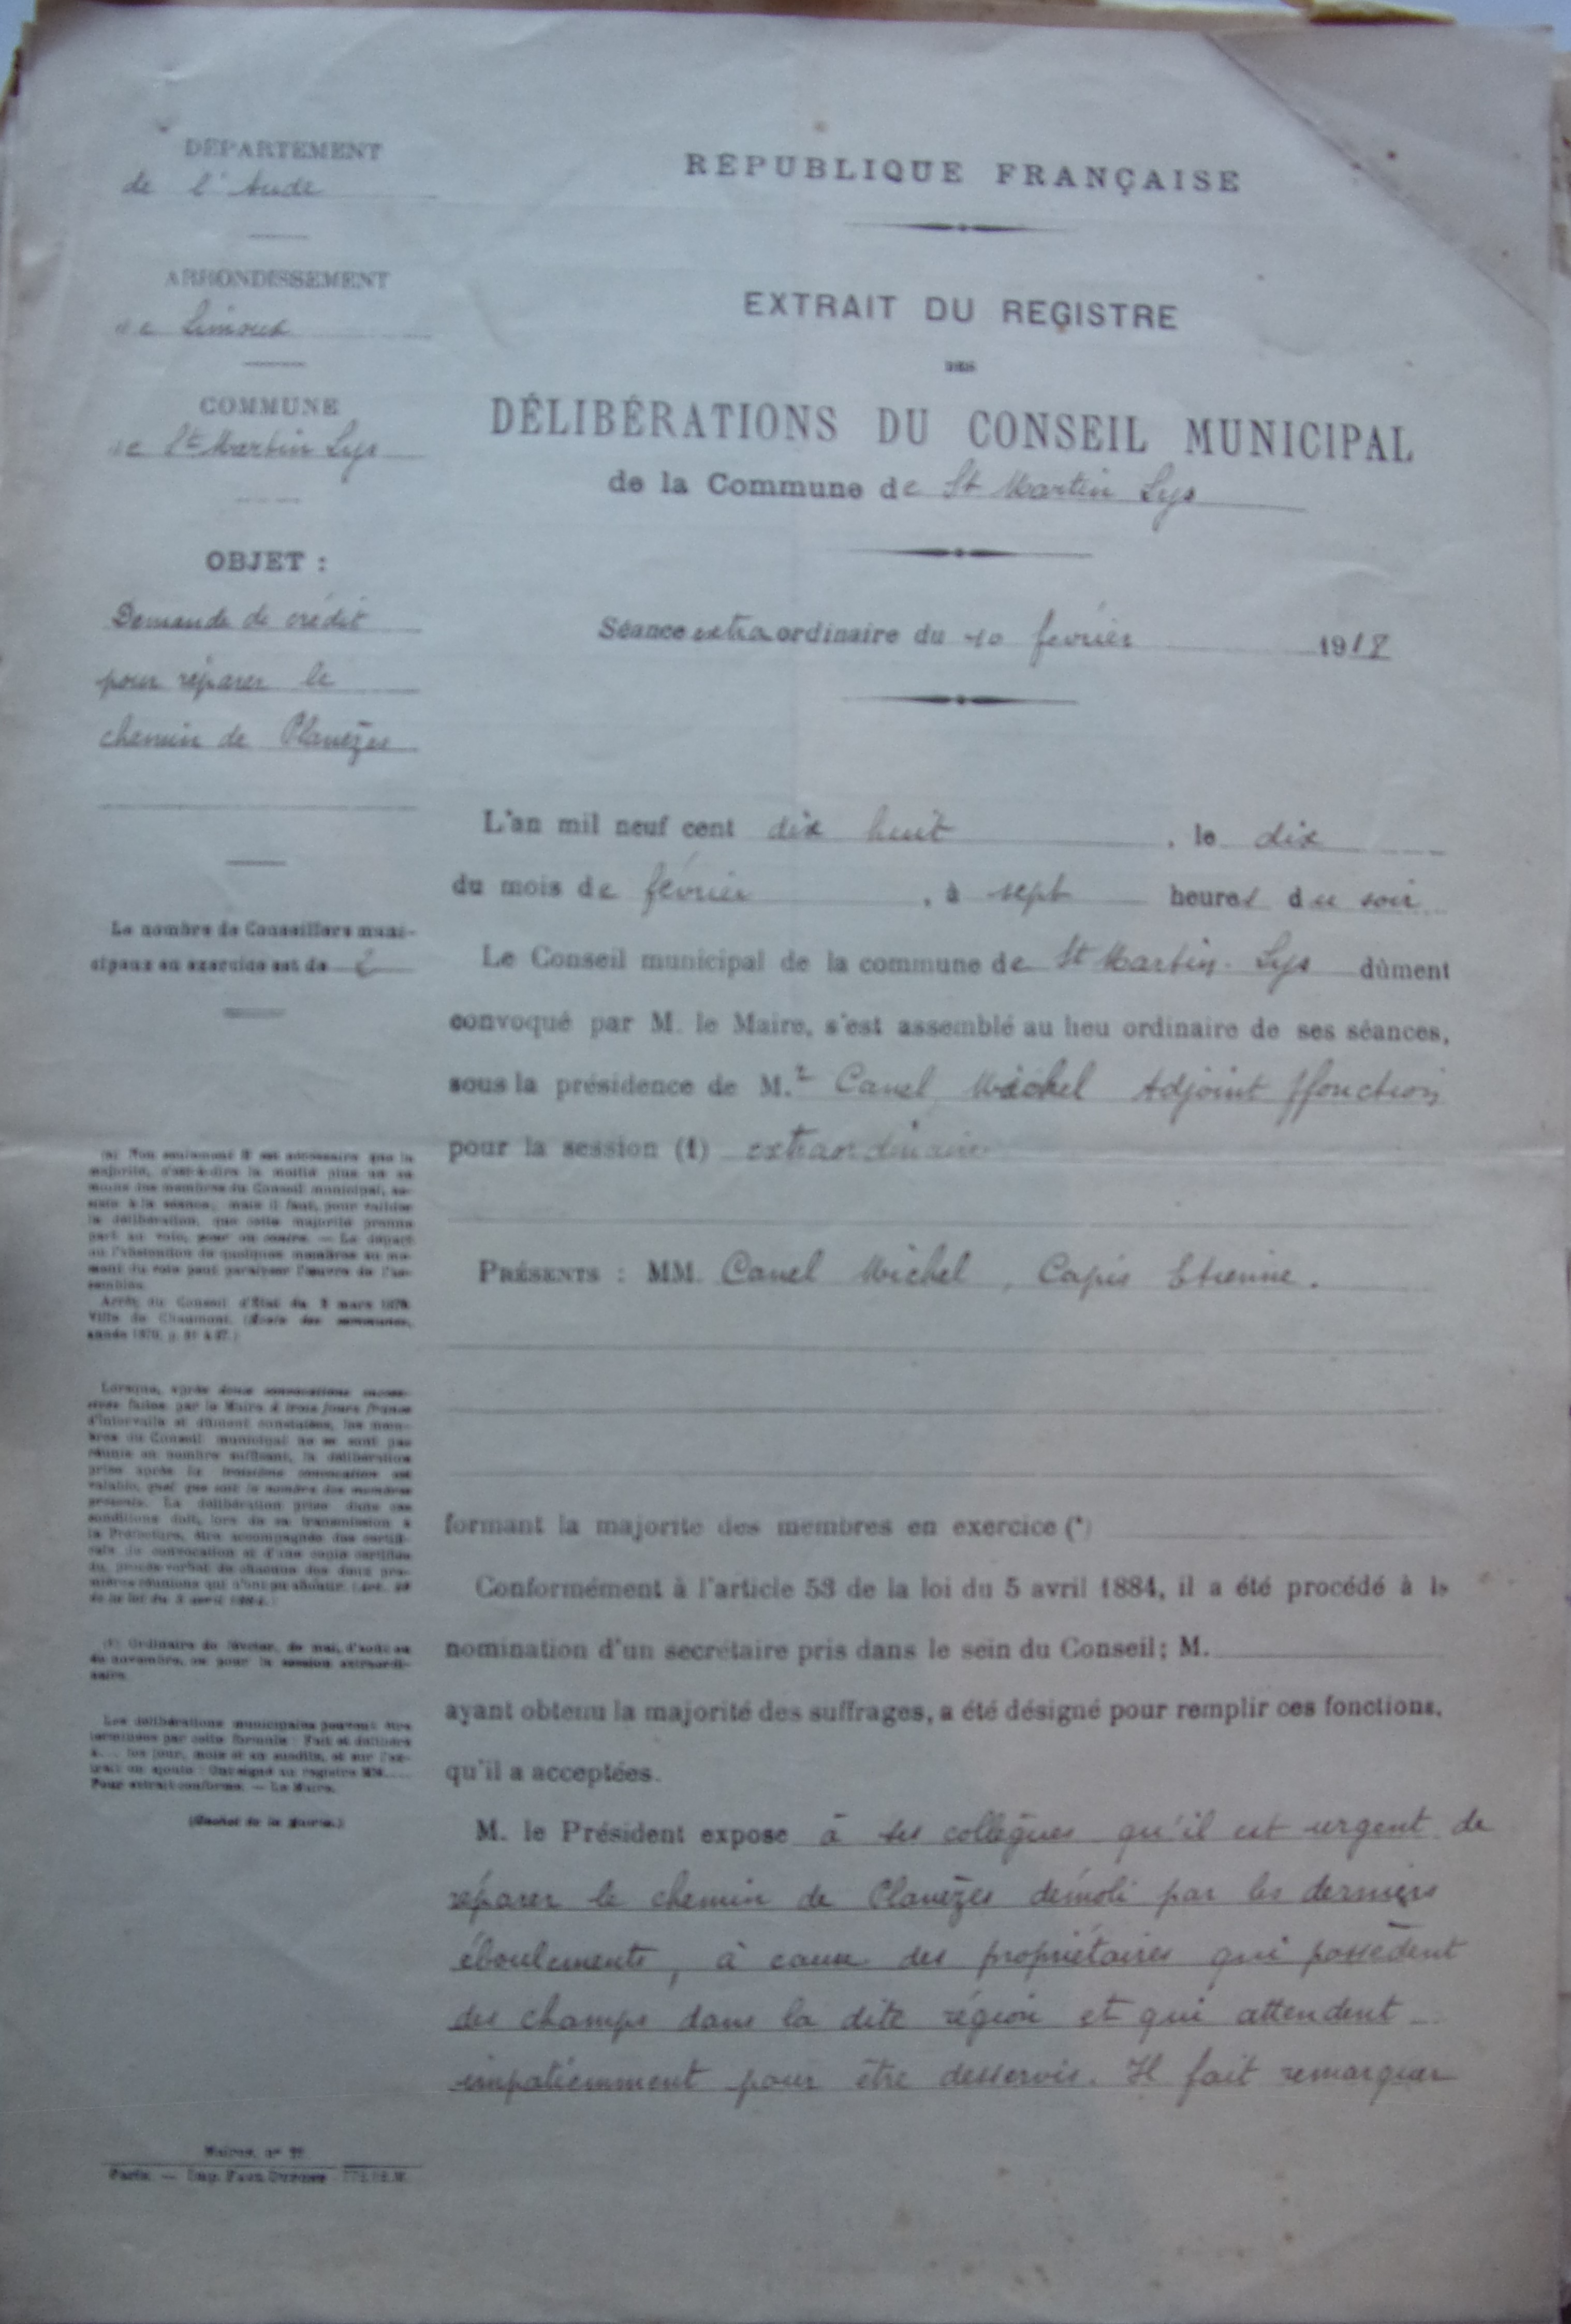 DÉPARTEMENT
de l'Aude
ARRONDISSEMENT
de Limoux
COMMUNE
de St Martin Lys
OBJET :
Demande de crédit
pour réparer le
chemin de Planèzes
Le nombre de Conseillers muni-
cipaux en exercice est de 2
(*) Non seulement il est nécessaire que la
majorité, c'est-à-dire la moitié plus un au
moins des membres du Conseil municipal, as-
siste à la séance; mais il faut, pour valider
la délibération, que cette majorité prenne
part au vote, pour ou contre. — Le départ
ou l'abstention de quelques membres au mo-
ment du vote peut paralyser l'œuvre de l'as-
semblée.
Arrêt du Conseil d'État du mars 1870.
Ville de Chaumont. (École des communes,
année 1870, p. 81 à 87.)
Lorsque, après deux convocations succes-
sives faites par le Maire à trois jours francs
d'intervalle et dûment constatées, les mem-
bres du Conseil municipal ne se sont pas
réunis en nombre suffisant, la délibération
prise après la troisième convocation est
valable, quel que soit le nombre des membres
présents. La délibération prise dans ces
conditions doit, lors de sa transmission à
la Préfecture, être accompagnée des certifi-
cats de convocation et d'une copie certifiée
du procès-verbal de chacune des deux pre-
mières réunions qui n'ont pu aboutir. (Art. 50
de la loi du 5 avril 1884.)
(1) Ordinaire de février, de mai, d'août ou
de novembre, ou pour la session extraordi-
naire.
Les délibérations municipales peuvent être
terminées par cette formule : Fait et délibéré
à.... les jour, mois et an susdits, et sur l'ex-
trait on ajoute : Ont signé au registre MM.....
Pour extrait conforme. — Le Maire.
(Cachet de la Mairie.)
Mairies, n°
Paris. — Imp. Paul Dupont
RÉPUBLIQUE FRANÇAISE
EXTRAIT DU REGISTRE
DES
DÉLIBÉRATIONS DU CONSEIL MUNICIPAL
de la Commune de St Martin Lys
Séance extraordinaire du 10 février 1918
L'an mil neuf cent dix huit, le dix
du mois de février, à sept heures du soir
Le Conseil municipal de la commune de St Martin-Lys dûment
convoqué par M. le Maire, s'est assemblé au lieu ordinaire de ses séances,
sous la présidence de M.r Canel Michel Adjoint ffonctions
pour la session (1) extraordinaire
PRÉSENTS : MM. Canel Michel, Capis Etienne.
formant la majorité des membres en exercice (*)
Conformément à l'article 53 de la loi du 5 avril 1884, il a été procédé à la
nomination d'un secrétaire pris dans le sein du Conseil; M.
ayant obtenu la majorité des suffrages, a été désigné pour remplir ces fonctions,
qu'il a acceptées.
M. le Président expose à ses collègues qu'il est urgent de
réparer le chemin de Planèzes démoli par les derniers
éboulements, à cause des propriétaires qui possèdent
des champs dans la dite région et qui attendent
impatiemment pour être desservis. Il fait remarquer